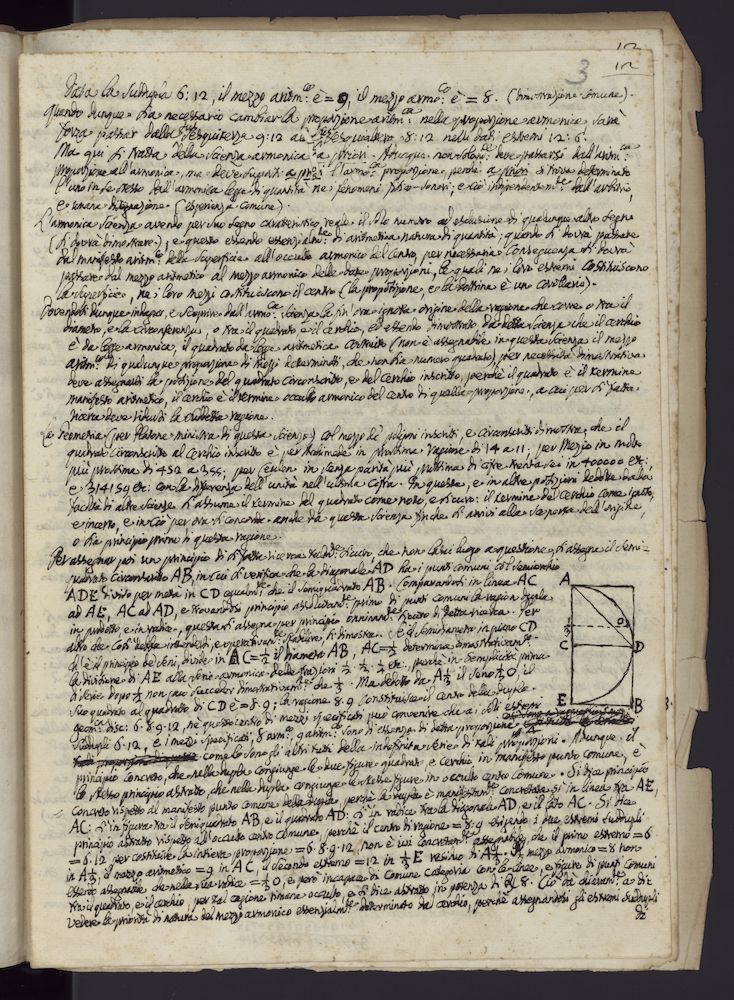 12
12
3
Data la Suddupla 6: 12, il mezzo aritm:co è = 9, il mezzo armo:co è = 8. (Dimostrazione comune).
quando dunque sia necessario cambiar la proporzione aritm:ca nella proporzione armonica sarà
forza passar dalla sesquiterza 9:12 alla sesquialtera 8:12 nelli dati estremi 12:6.
Ma qui si tratta della Scienza armonica a priori. Adunque non solam:te deve trattarsi dall'aritm:ca
proporzione all'armonica, ma deve a priori l'armo:ca proporzione, perchè a priori si trova determinato
uno in se stesso dall'armonica legge di quantità ne' fenomeni fisico-sonori; e ciò independentem:te dall'arbitrio,
e umana (esperienza comune).
L'armonica Scienza avendo per suo segno caratteristico, reale il solo numero ad esclusione di qualunque altro segno
(si dovrà dimostrare); e questo essendo essenzialm:te di aritmetica natura di quantità; quando si dovrà passare
dal manifesto aritm:co della superficie all'occulto armonico del centro, per necessaria conseguenza si dovrà
passare dal mezzo aritmetico al mezzo armonico delle date proporzioni, le quali ne' loro estremi costituiscono
la superficie, ne' loro mezzi costituiscono il centro (la proposizione, e la dottrina è un corollario).
Dovendosi dunque indagar, e scoprire dall'armo:ca Scienza la sin'ora ignota origine della ragione che corre o tra il
diametro, e la circonferenza, o tra il quadrato, e il cerchio, ed essendo dimostrato da detta scienza che il cerchio
è da legge armonica, il quadrato da legge aritmetica costruito (non è assegnabile in questa scienza il mezzo
aritm:co di qualunque proporzione di mezzi determinati, che non sia numero quadrato) per necessità dimostrativa
deve assegnarsi la posizione del quadrato circonscritto, e del cerchio inscritto, perchè il quadrato è il termine
manifesto aritmetico, il cerchio è il termine occulto armonico del centro di quella proporzione, a cui per si fatta
ricerca deve ridursi la suddetta ragione.
La Geometria (per Platone ministra di questa scienza) col mezzo de' poligoni inscritti, e circonscritti dimostra, che il
quadrato circonscritto al cerchio inscritto è per Archimede in prossima ragione di 14 a 11; per Mezio in molto
più prossima di 452 a 355; per Ceulen in senza parità più prossima di cifre trentasei in 40000 etc:,
e 314159 etc: con la differenza dell'unità nell'ultima cifra. In questa, e in altre posizioni dedotte dalla
facoltà di altre scienze si assume il termine del quadrato come noto, e sicuro: il termine del cerchio come ignoto,
e incerto, e in ciò per ora si concorda anche da questa scienza finchè si arrivi alla scoperta dell'origine,
o sia principio primo di questa ragione.
Per assegnar poi un principio di si fatta ricerca talm:te sicuro, che non lasci luogo a questione, si assegna il semi-
quadrato circonscritto AB, in cui si verifica che la diagonale AD ha i punti comuni col semicerchio
ADE diviso per metà in CD egualm:te che il semiquadrato AB. Comparandosi in linea AC
ad AE, AC ad AD, e trovandosi principio assolutam:te primo di punti comuni la ragion dupla
in prodotto e in radice, questa si assegna per principio onninam:te sicuro di detta ricerca. Per
altro che così debba intendersi, e operativam:te stabilire, si dimostra. Se il semidiametro in piano CD
ch'è il principio de' seni, divide in AC = 1/2 il diametro AB, AC = 1/2 determina dimostrativam:te
la divisione di AE alla serie armonica delle frazioni 1/2. 1/3. 1/4 etc: perchè in semplicità prima
di serie dopo 1/2 non può succeder dimostrativam:te che 1/3. Ma dedotto da A 1/3 il seno 1/3 O, il
suo quadrato al quadrato di CD è = 8. 9; la ragione 8.9 costituisce il centro della dupla
geom:ca disc: 6. 8. 9. 12, nè questo centro di mezzi specificati può convenire che a' soli estremi
suddupli 6. 12, e i mezzi specificati, 8 armo:co, 9 aritm:co sono di essenza di detta proporzione
come lo sono di altri tutti della indefinita serie di tali proporzioni. Adunque il
principio concreto, che nella dupla congiunge le due figure quadrato, e cerchio in manifesto punto comune, è
lo stesso principio astratto, che nella dupla congiunge le stesse figure in occulto centro comune. Si dice principio
concreto rispetto al manifesto punto comune della dupla, perchè la dupla è manifestam:te concretata sì in linea tra AE,
AC: sì in figura tra il semiquadrato AB e il quadrato AD: sì in radice tra la diagonale AD, e il lato AC. Si dice
principio astratto rispetto all'occulto centro comune, perchè il centro di ragione = 8.9 esigendo i due estremi suddupli
= 6. 12, per costituire la intiera proporzione = 6. 8. 9. 12, non è ivi concretam:te assegnabile, che il primo estremo = 6
in A 1/3, il mezzo aritmetico = 9 in AC, il secondo estremo = 12 in 1/3 E residuo di A 1/3. Il mezzo armonico = 8 non
essere assegnabile che nella sua radice = 1/3 O, e però incapace di comune categoria con le linee, e figure di punti comuni
tra il quadrato, e il cerchio, per tal cagione rimane occulto e si dice astratto, in potenza di 8. Ciò dà chiaram:te a di-
vedere la priorità di natura del mezzo armonico essenzialm:te determinato dal cerchio, perchè assegnandosi gli estremi suddupli
di
A
1/3
O
C
D
E
B